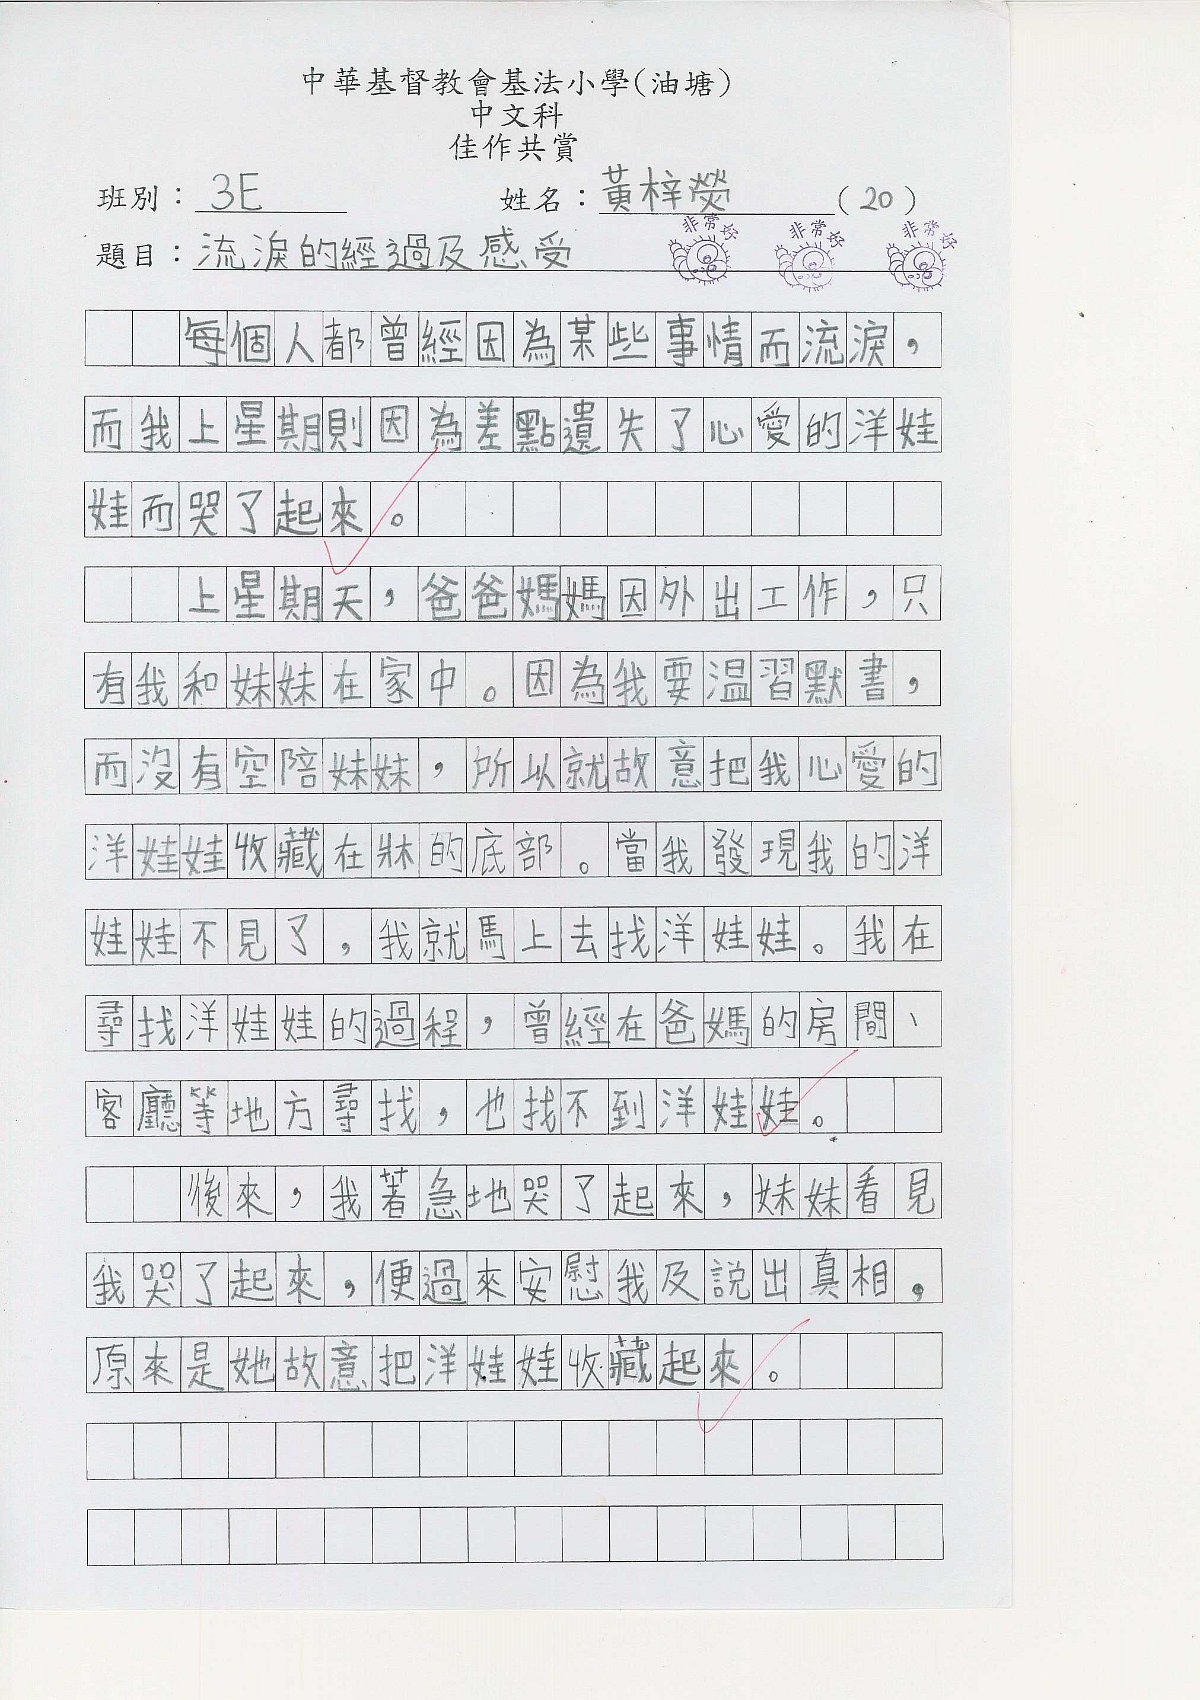 中華基督教會基法小學(油塘)
中文科
佳作共賞
班別：3E 姓名：黃梓熒(20)
題目：流淚的經過及感受
非常好 非常好 非常好
每個人都曾經因為某些事情而流淚，
而我上星期則因為差點遺失了心愛的洋娃
娃而哭了起來。
上星期天，爸爸媽媽因外出工作，只
有我和妹妹在家中。因為我要温習默書，
而沒有空陪妹妹，所以就故意把我心愛的
洋娃娃收藏在牀的底部。當我發現我的洋
娃娃不見了，我就馬上去找洋娃娃。我在
尋找洋娃娃的過程，曾經在爸媽的房間、
客廳等地方尋找，也找不到洋娃娃。
後來，我著急地哭了起來，妹妹看見
我哭了起來，便過來安慰我及說出真相，
原來是她故意把洋娃娃收藏起來。